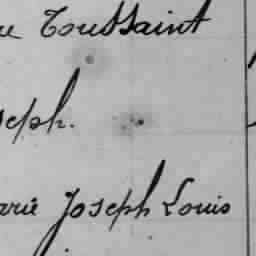 Toussaint
seph.
arie Joseph Louis